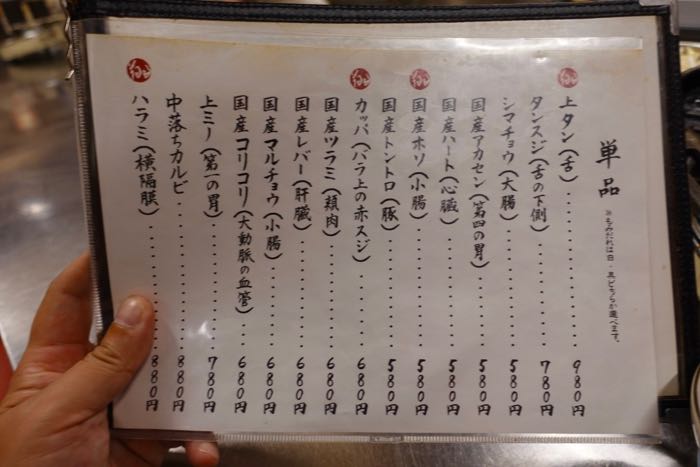 単品
※もみだれは白・黒どちらか選べます。
上タン(舌)・・・・・・・・・・・・980円
タンスジ(舌の下側)・・・・・・・・・780円
シマチョウ(大腸)・・・・・・・・・・580円
国産アカセン(第四の胃)・・・・・・・580円
国産ハート(心臓)・・・・・・・・・・580円
国産ホソ(小腸)・・・・・・・・・・・580円
国産トントロ(豚)・・・・・・・・・・580円
カッパ(バラ上の赤スジ)・・・・・・・680円
国産ツラミ(頬肉)・・・・・・・・・・680円
国産レバー(肝臓)・・・・・・・・・・680円
国産マルチョウ(小腸)・・・・・・・・680円
国産コリコリ(大動脈の血管)・・・・・680円
上ミノ(第一の胃)・・・・・・・・・・780円
中落ちカルビ・・・・・・・・・・・・880円
ハラミ(横隔膜)・・・・・・・・・・・880円